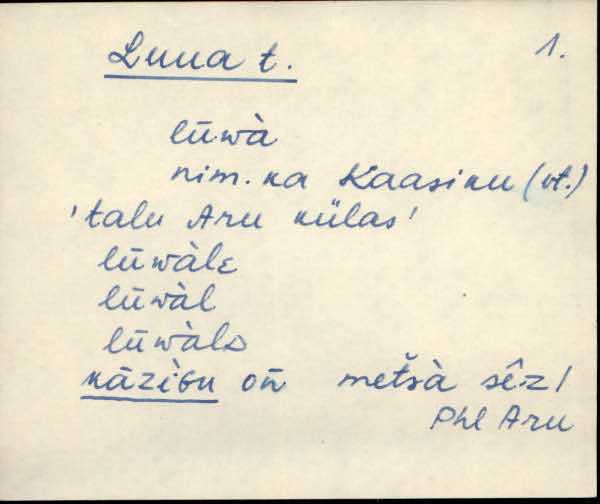 Luua t. 1.
lūwà
nim. ka Kaasiku (vt.)
'talu Aru külas'
lūwàlɛ
lūwàl
lūwàls
kāzìɢu on̄ metšà sê·z/
Phl Aru